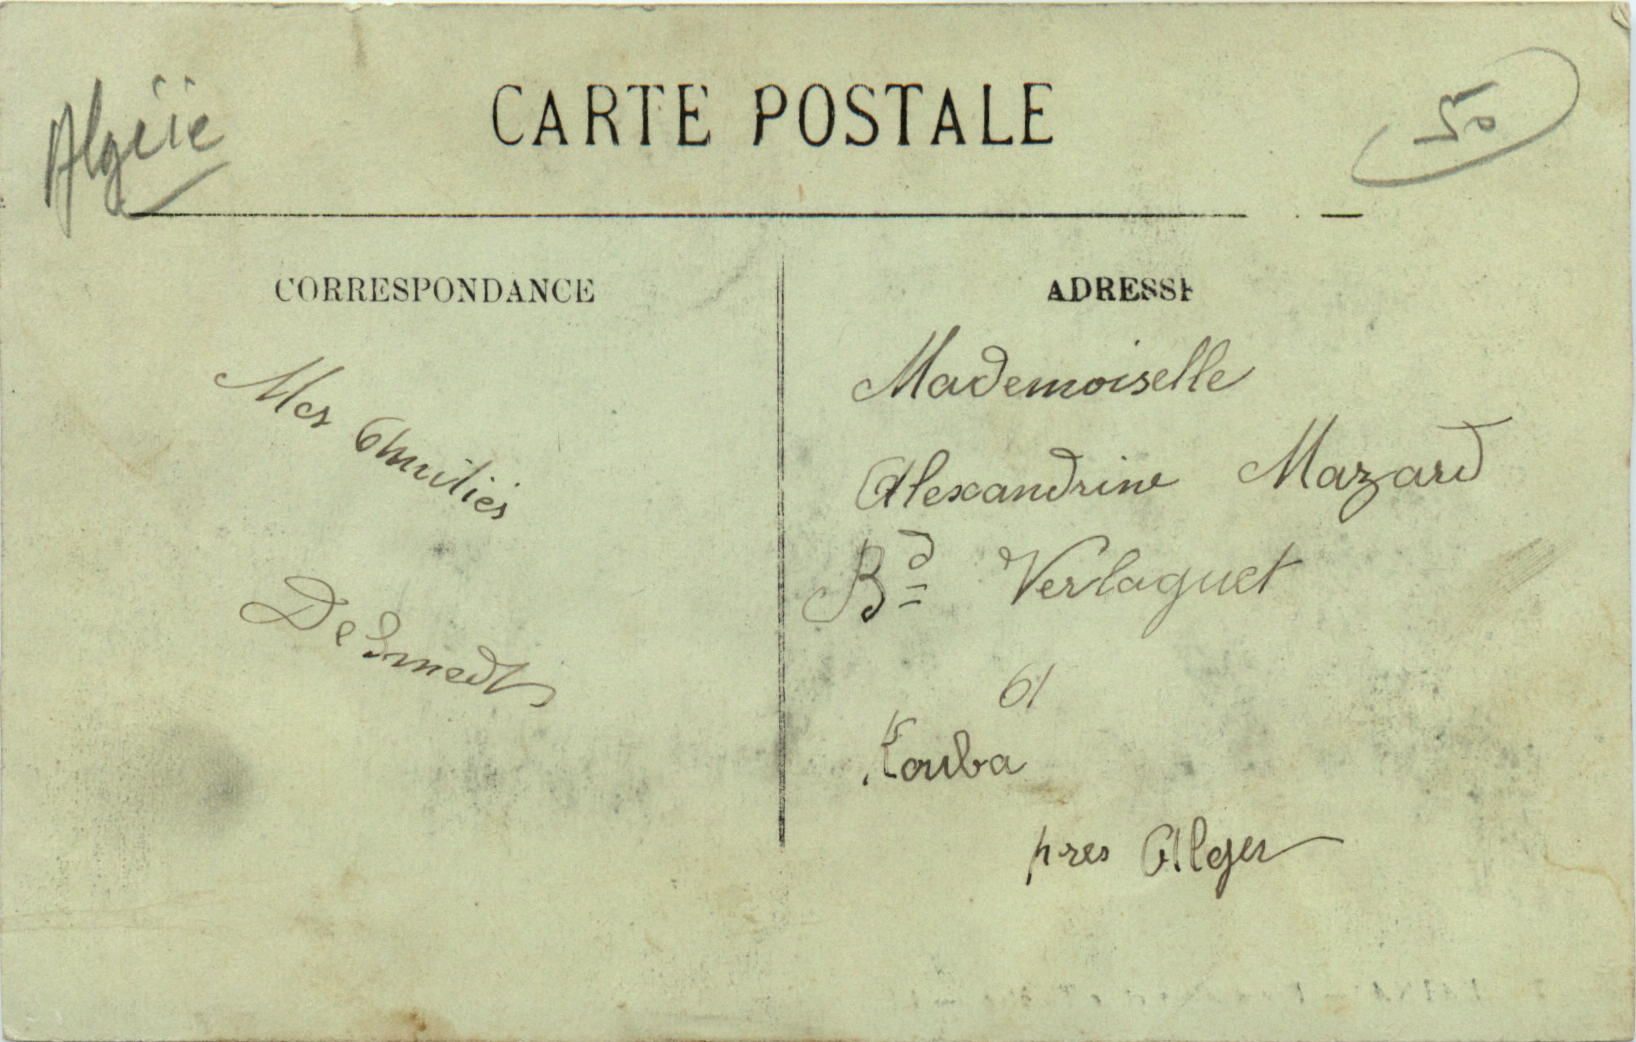 Algérie
CARTE POSTALE
50
CORRESPONDANCE
Mes Amitiés
ADRESSE
Mademoiselle
Alexandrine Mazard
Bd Verlaguet
61
Kouba
pres Alger